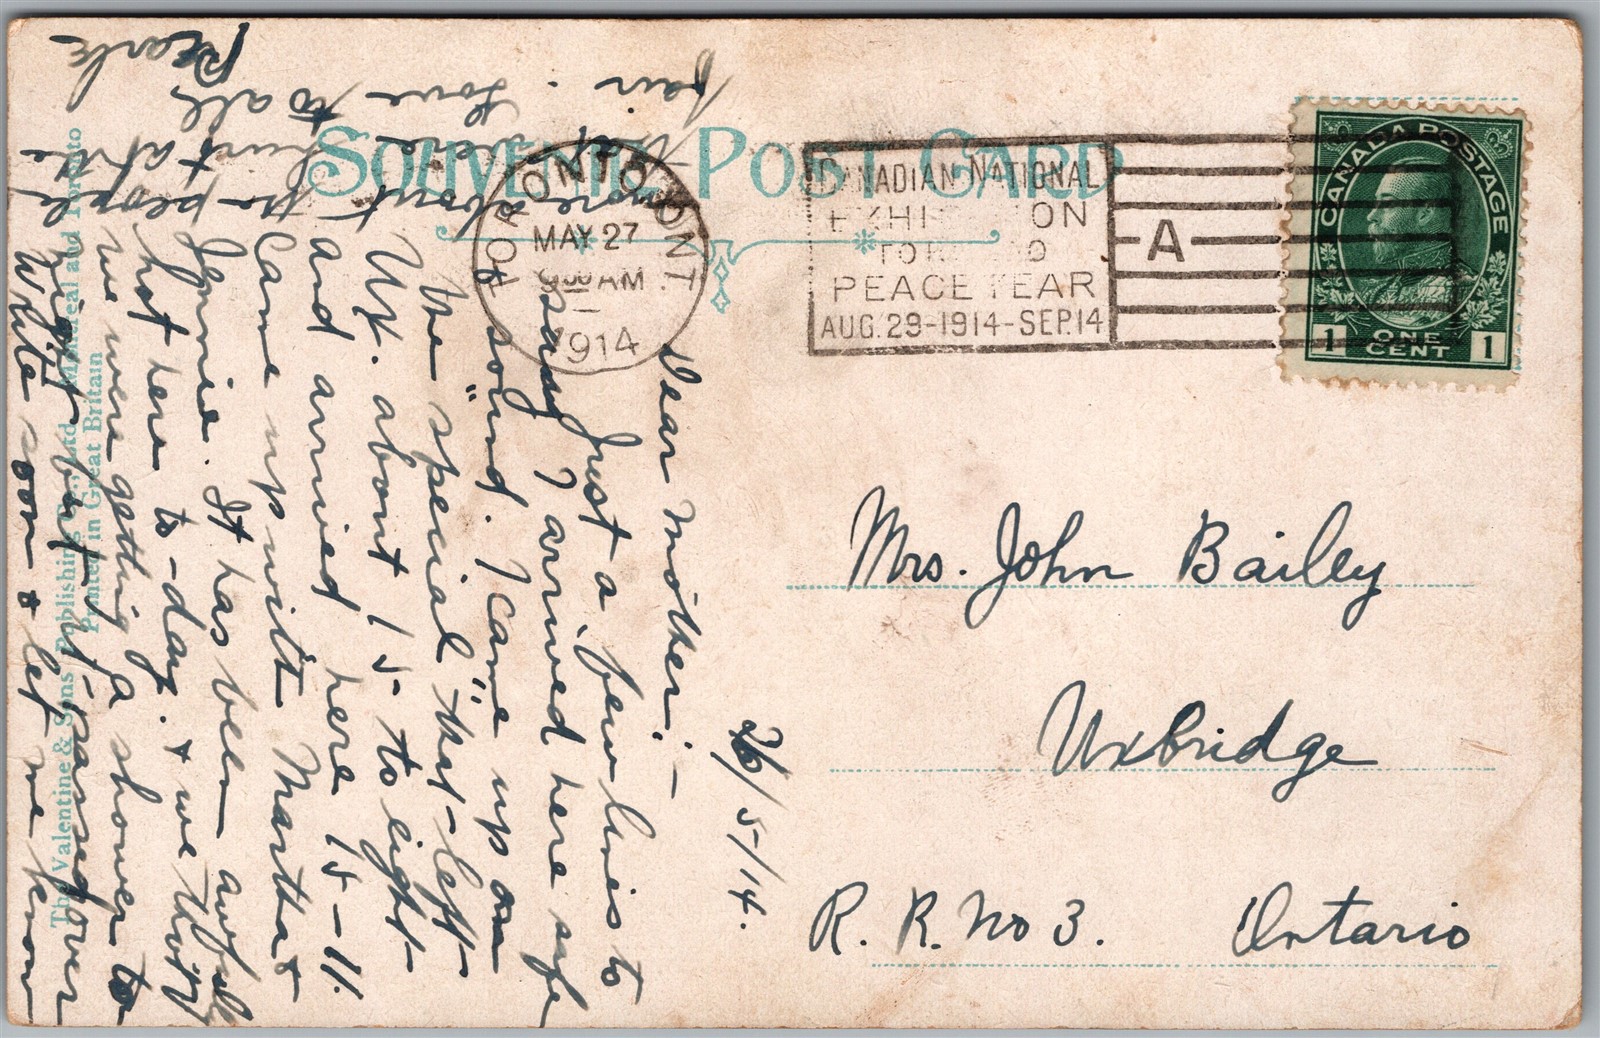 SOUVENIR POST CARD
TORONTO, ONT.
MAY 27
9 00 AM
1914
CANADIAN NATIONAL
EXHIBITION
TORONTO
PEACE YEAR
AUG. 29-1914-SEP. 14
A
CANADA POSTAGE
1 ONE CENT 1
Mrs. John Bailey
Uxbridge
R. R. No 3. Ontario
26/5-/14.
Dear Mother:-
Just a few lines to
say I arrived here safe
& sound. I came up on
the "special" that left
Ux. about 15 to eight
and arrived here 15-11.
Came up with Martha &
Jennie. It has been awful
hot here to-day. & we thot
we were getting a shower to
night but it passed over
Write soon & let me know
more about the people
that were hurt at the
fair. Love to all,
Pearle
The Valentine & Sons Publishing Co., Ltd., Montreal and Toronto
Printed in Great Britain